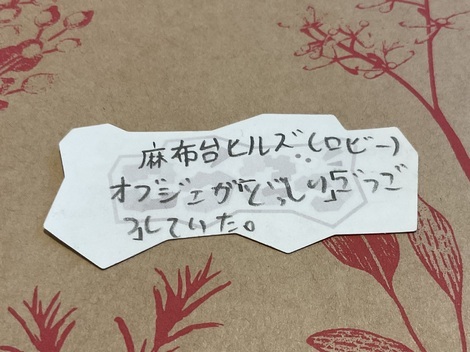 麻布台ヒルズ(ロビー)
オブジェが「どっしり」「ごつご
つ」していた。